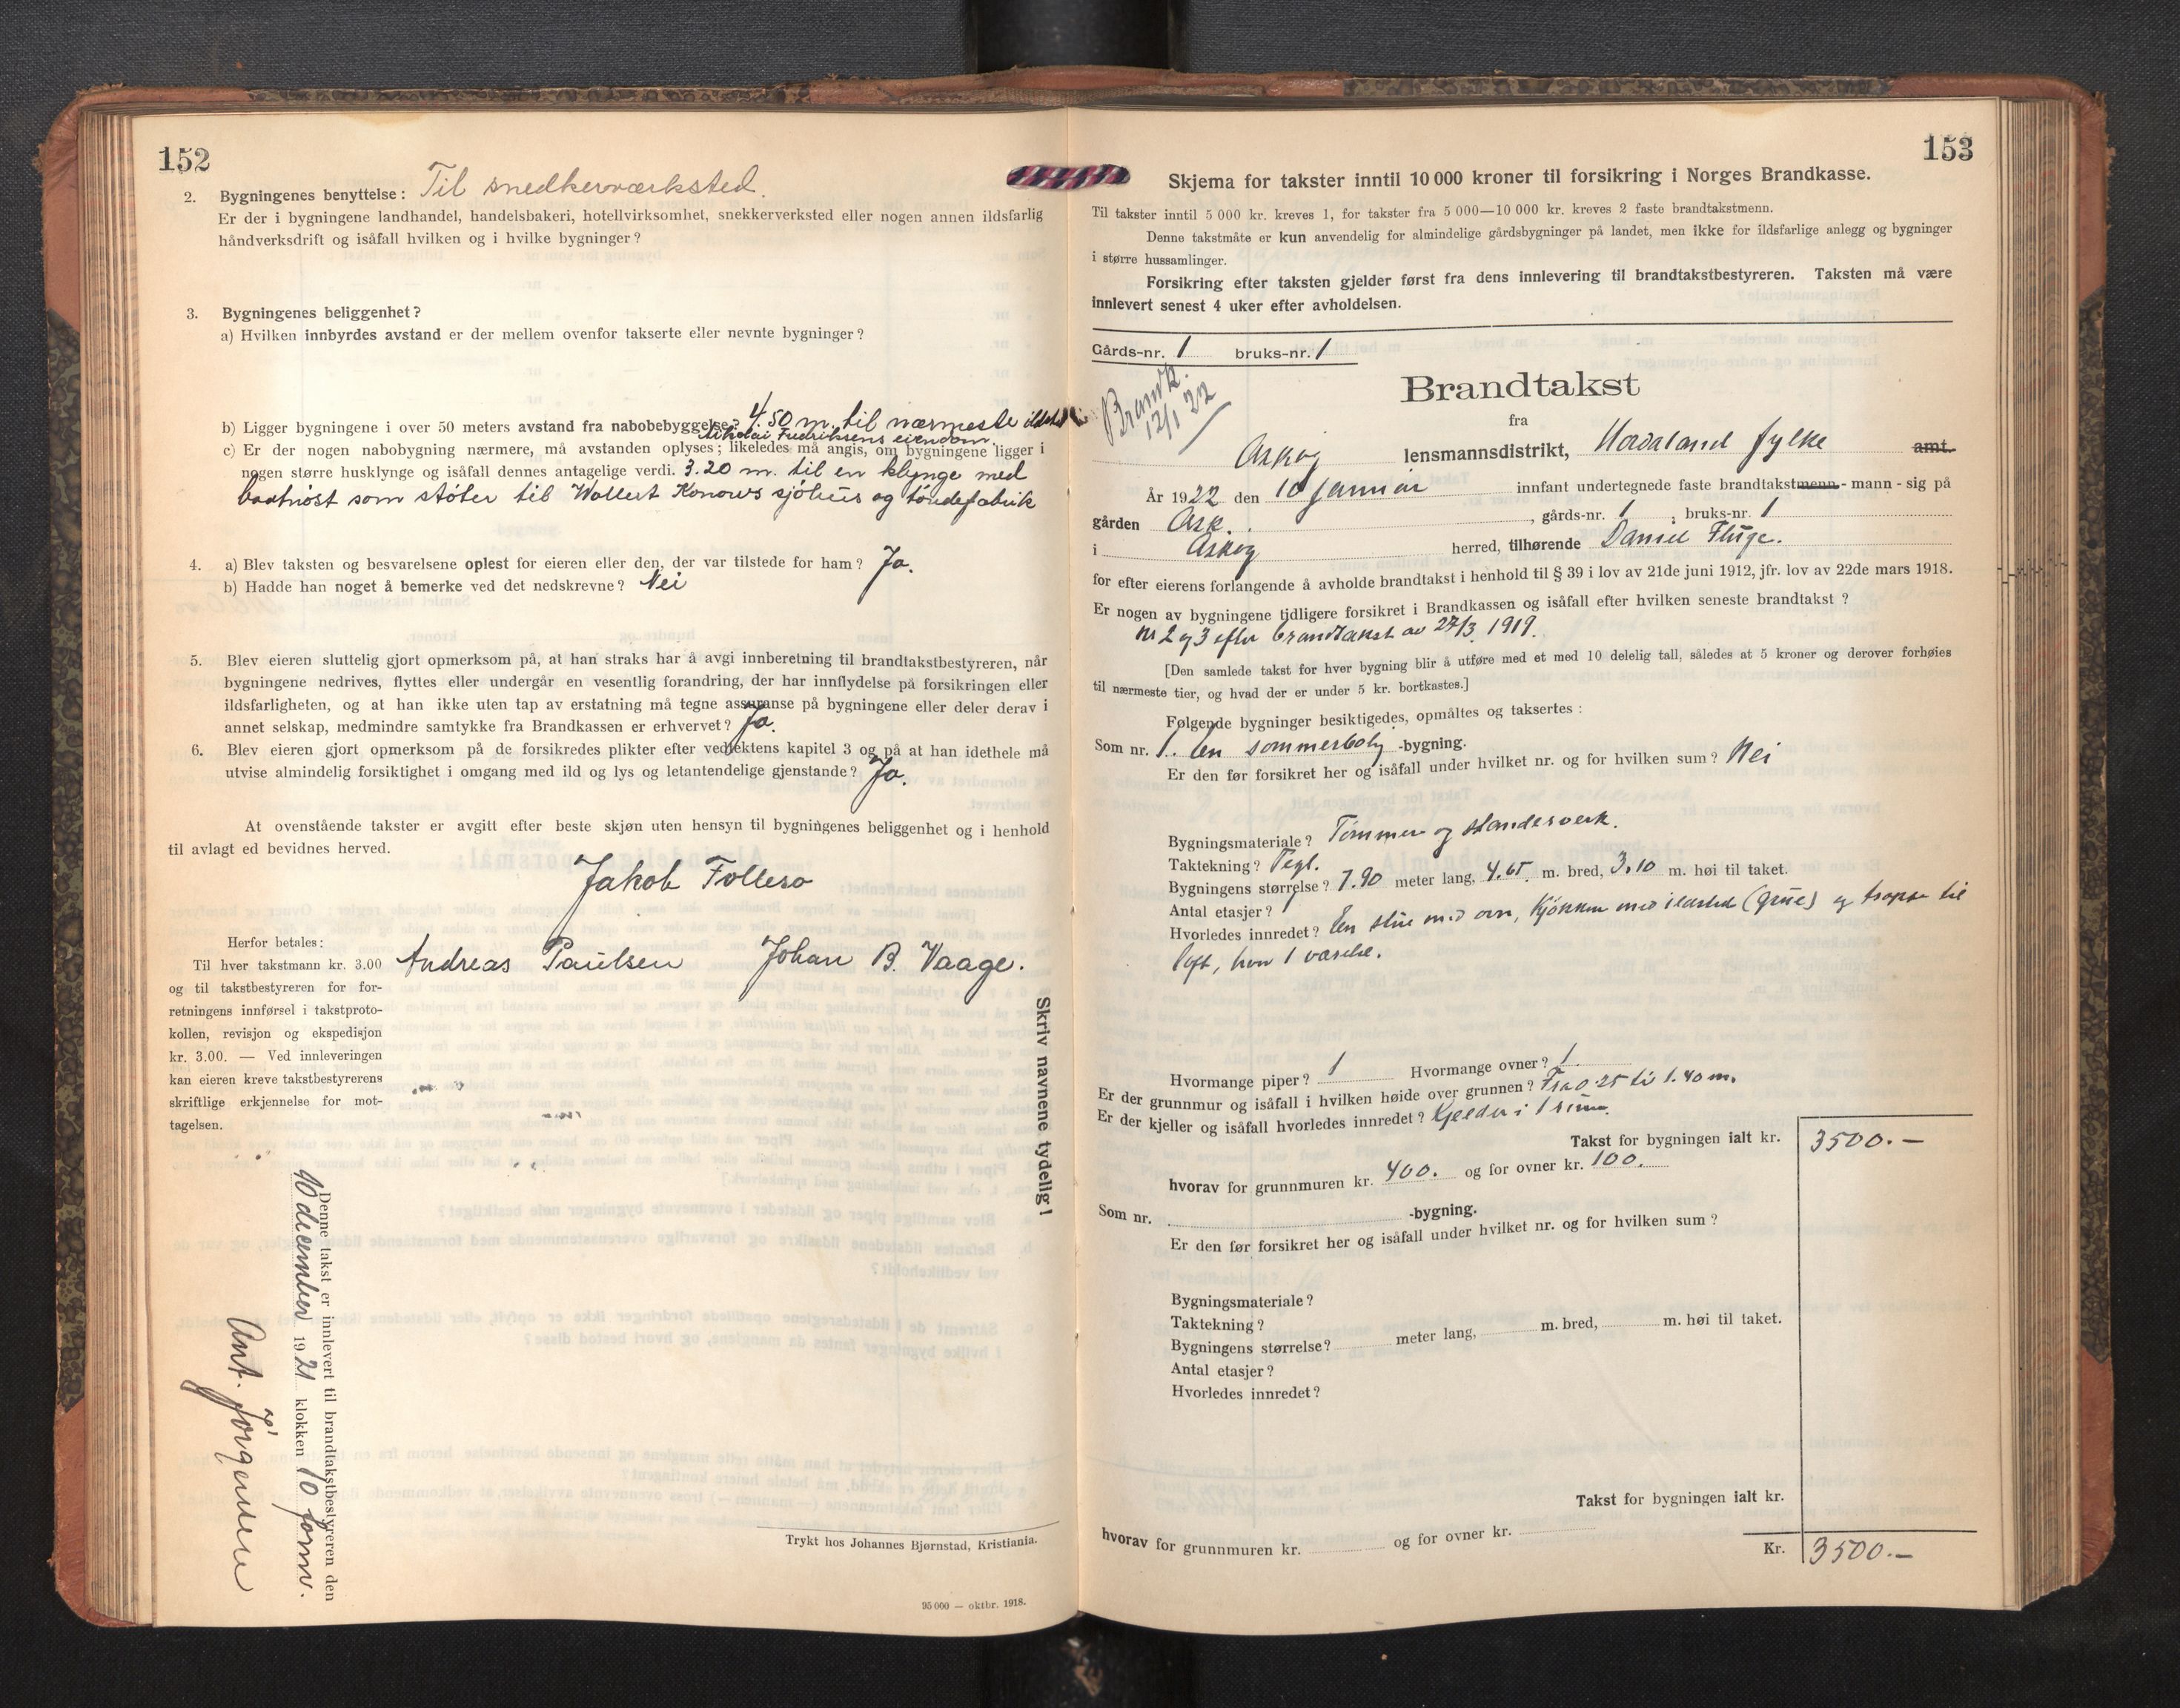 152
2. Bygningenes benyttelse: Til snedkerværksted.
Er der i bygningene landhandel, handelsbakeri, hotellvirksomhet, snekkerverksted eller nogen annen ildsfarlig
håndverksdrift og isåfall hvilken og i hvilke bygninger?
3. Bygningenes beliggenhet?
a) Hvilken innbyrdes avstand er der mellem ovenfor takserte eller nevnte bygninger?
b) Ligger bygningene i over 50 meters avstand fra nabobebyggelse? 4.50 m. til nærmeste ildsted
Nikolai Fredriksens eiendom.
c) Er der nogen nabobygning nærmere, må avstanden oplyses; likeledes må angis, om bygningene ligger i
nogen større husklynge og isåfall dennes antagelige verdi. 3.20 m. til en klynge med
baatnöst som stöter til Wollert Konows sjöhus og töndefabrik
4. a) Blev taksten og besvarelsene oplest for eieren eller den, der var tilstede for ham? Ja.
b) Hadde han noget å bemerke ved det nedskrevne? Nei
5. Blev eieren sluttelig gjort opmerksom på, at han straks har å avgi innberetning til brandtakstbestyreren, når
bygningene nedrives, flyttes eller undergår en vesentlig forandring, der har innflydelse på forsikringen eller
ildsfarligheten, og at han ikke uten tap av erstatning må tegne assuranse på bygningene eller deler derav i
annet selskap, medmindre samtykke fra Brandkassen er erhvervet? Ja.
6. Blev eieren gjort opmerksom på de forsikredes plikter efter vedtektens kapitel 3 og på at han idethele må
utvise almindelig forsiktighet i omgang med ild og lys og letantendelige gjenstande? Ja.
At ovenstående takster er avgitt efter beste skjøn uten hensyn til bygningenes beliggenhet og i henhold
til avlagt ed bevidnes herved.
Jakob Follesø
Andreas Paulsen Johan B. Vaage.
Herfor betales:
Til hver takstmann kr. 3.00
og til takstbestyreren for for-
retningens innførsel i takstproto-
kollen, revisjon og ekspedisjon
kr. 3.00. — Ved innleveringen
kan eieren kreve takstbestyrerens
skriftlige erkjennelse for mot-
tagelsen.
Skriv navnene tydelig!
Denne takst er innlevert til brandtakstbestyreren den
10 december 1921 klokken 10 form.
Ant. Jörgensen
Trykt hos Johannes Bjørnstad, Kristiania.
95 000 — oktbr. 1918.
153
Skjema for takster inntil 10 000 kroner til forsikring i Norges Brandkasse.
Til takster inntil 5 000 kr. kreves 1, for takster fra 5 000—10 000 kr. kreves 2 faste brandtakstmenn.
Denne takstmåte er kun anvendelig for almindelige gårdsbygninger på landet, men ikke for ildsfarlige anlegg og bygninger
i større hussamlinger.
Forsikring efter taksten gjelder først fra dens innlevering til brandtakstbestyreren. Taksten må være
innlevert senest 4 uker efter avholdelsen.
Gårds-nr. 1 bruks-nr. 1
Brandk.
12/1 22
Brandtakst
fra
Askøy lensmannsdistrikt, Hordaland fylke amt.
År 1922 den 10 januar innfant undertegnede faste brandtakstmenn - mann - sig på
gården Ask. , gårds-nr. 1 , bruks-nr. 1
i Askøy herred, tilhørende Daniel Fluge.
for efter eierens forlangende å avholde brandtakst i henhold til § 39 i lov av 21de juni 1912, jfr. lov av 22de mars 1918.
Er nogen av bygningene tidligere forsikret i Brandkassen og isåfall efter hvilken seneste brandtakst?
Nr 2 og 3 efter brandtakst av 27/3 1919.
[Den samlede takst for hver bygning blir å utføre med et med 10 delelig tall, således at 5 kroner og derover forhøies
til nærmeste tier, og hvad der er under 5 kr. bortkastes.]
Følgende bygninger besiktigedes, opmåltes og taksertes:
Som nr. 1. en sommerbolig -bygning.
Er den før forsikret her og isåfall under hvilket nr. og for hvilken sum? Nei
Bygningsmateriale? Tömmer og standerverk.
Taktekning? Tegl.
Bygningens størrelse? 7.90 meter lang, 4.65 m. bred, 3.10 m. høi til taket.
Antal etasjer? 1
Hvorledes innredet? En stue med ovn, kjökken med ildsted (grue) og trappe til
loft, hvor 1 værelse.
Hvormange piper? 1 Hvormange ovner? 1.
Er der grunnmur og isåfall i hvilken høide over grunnen? Fra 0.25 til 1.40 m.
Er der kjeller og isåfall hvorledes innredet? Kjelder i 1 rum.
Takst for bygningen ialt kr. 3500.—
hvorav for grunnmuren kr. 400. og for ovner kr. 100.
Som nr. -bygning.
Er den før forsikret her og isåfall under hvilket nr. og for hvilken sum?
Bygningsmateriale?
Taktekning?
Bygningens størrelse? meter lang, m. bred, m. høi til taket.
Antal etasjer?
Hvorledes innredet?
Takst for bygningen ialt kr.
hvorav for grunnmuren kr. og for ovner kr.
Kr. 3500.—